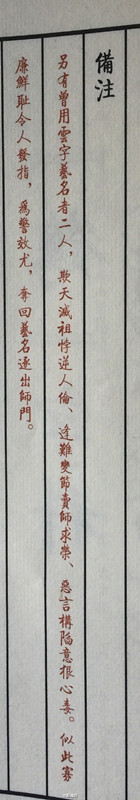 備注
另有曾用雲字藝名者二人，欺天滅祖悖逆人倫、逢難變節賣師求榮、惡言構陷意狠心毒。似此寡
廉鮮耻令人發指，為警效尤，奪回藝名逐出師門。